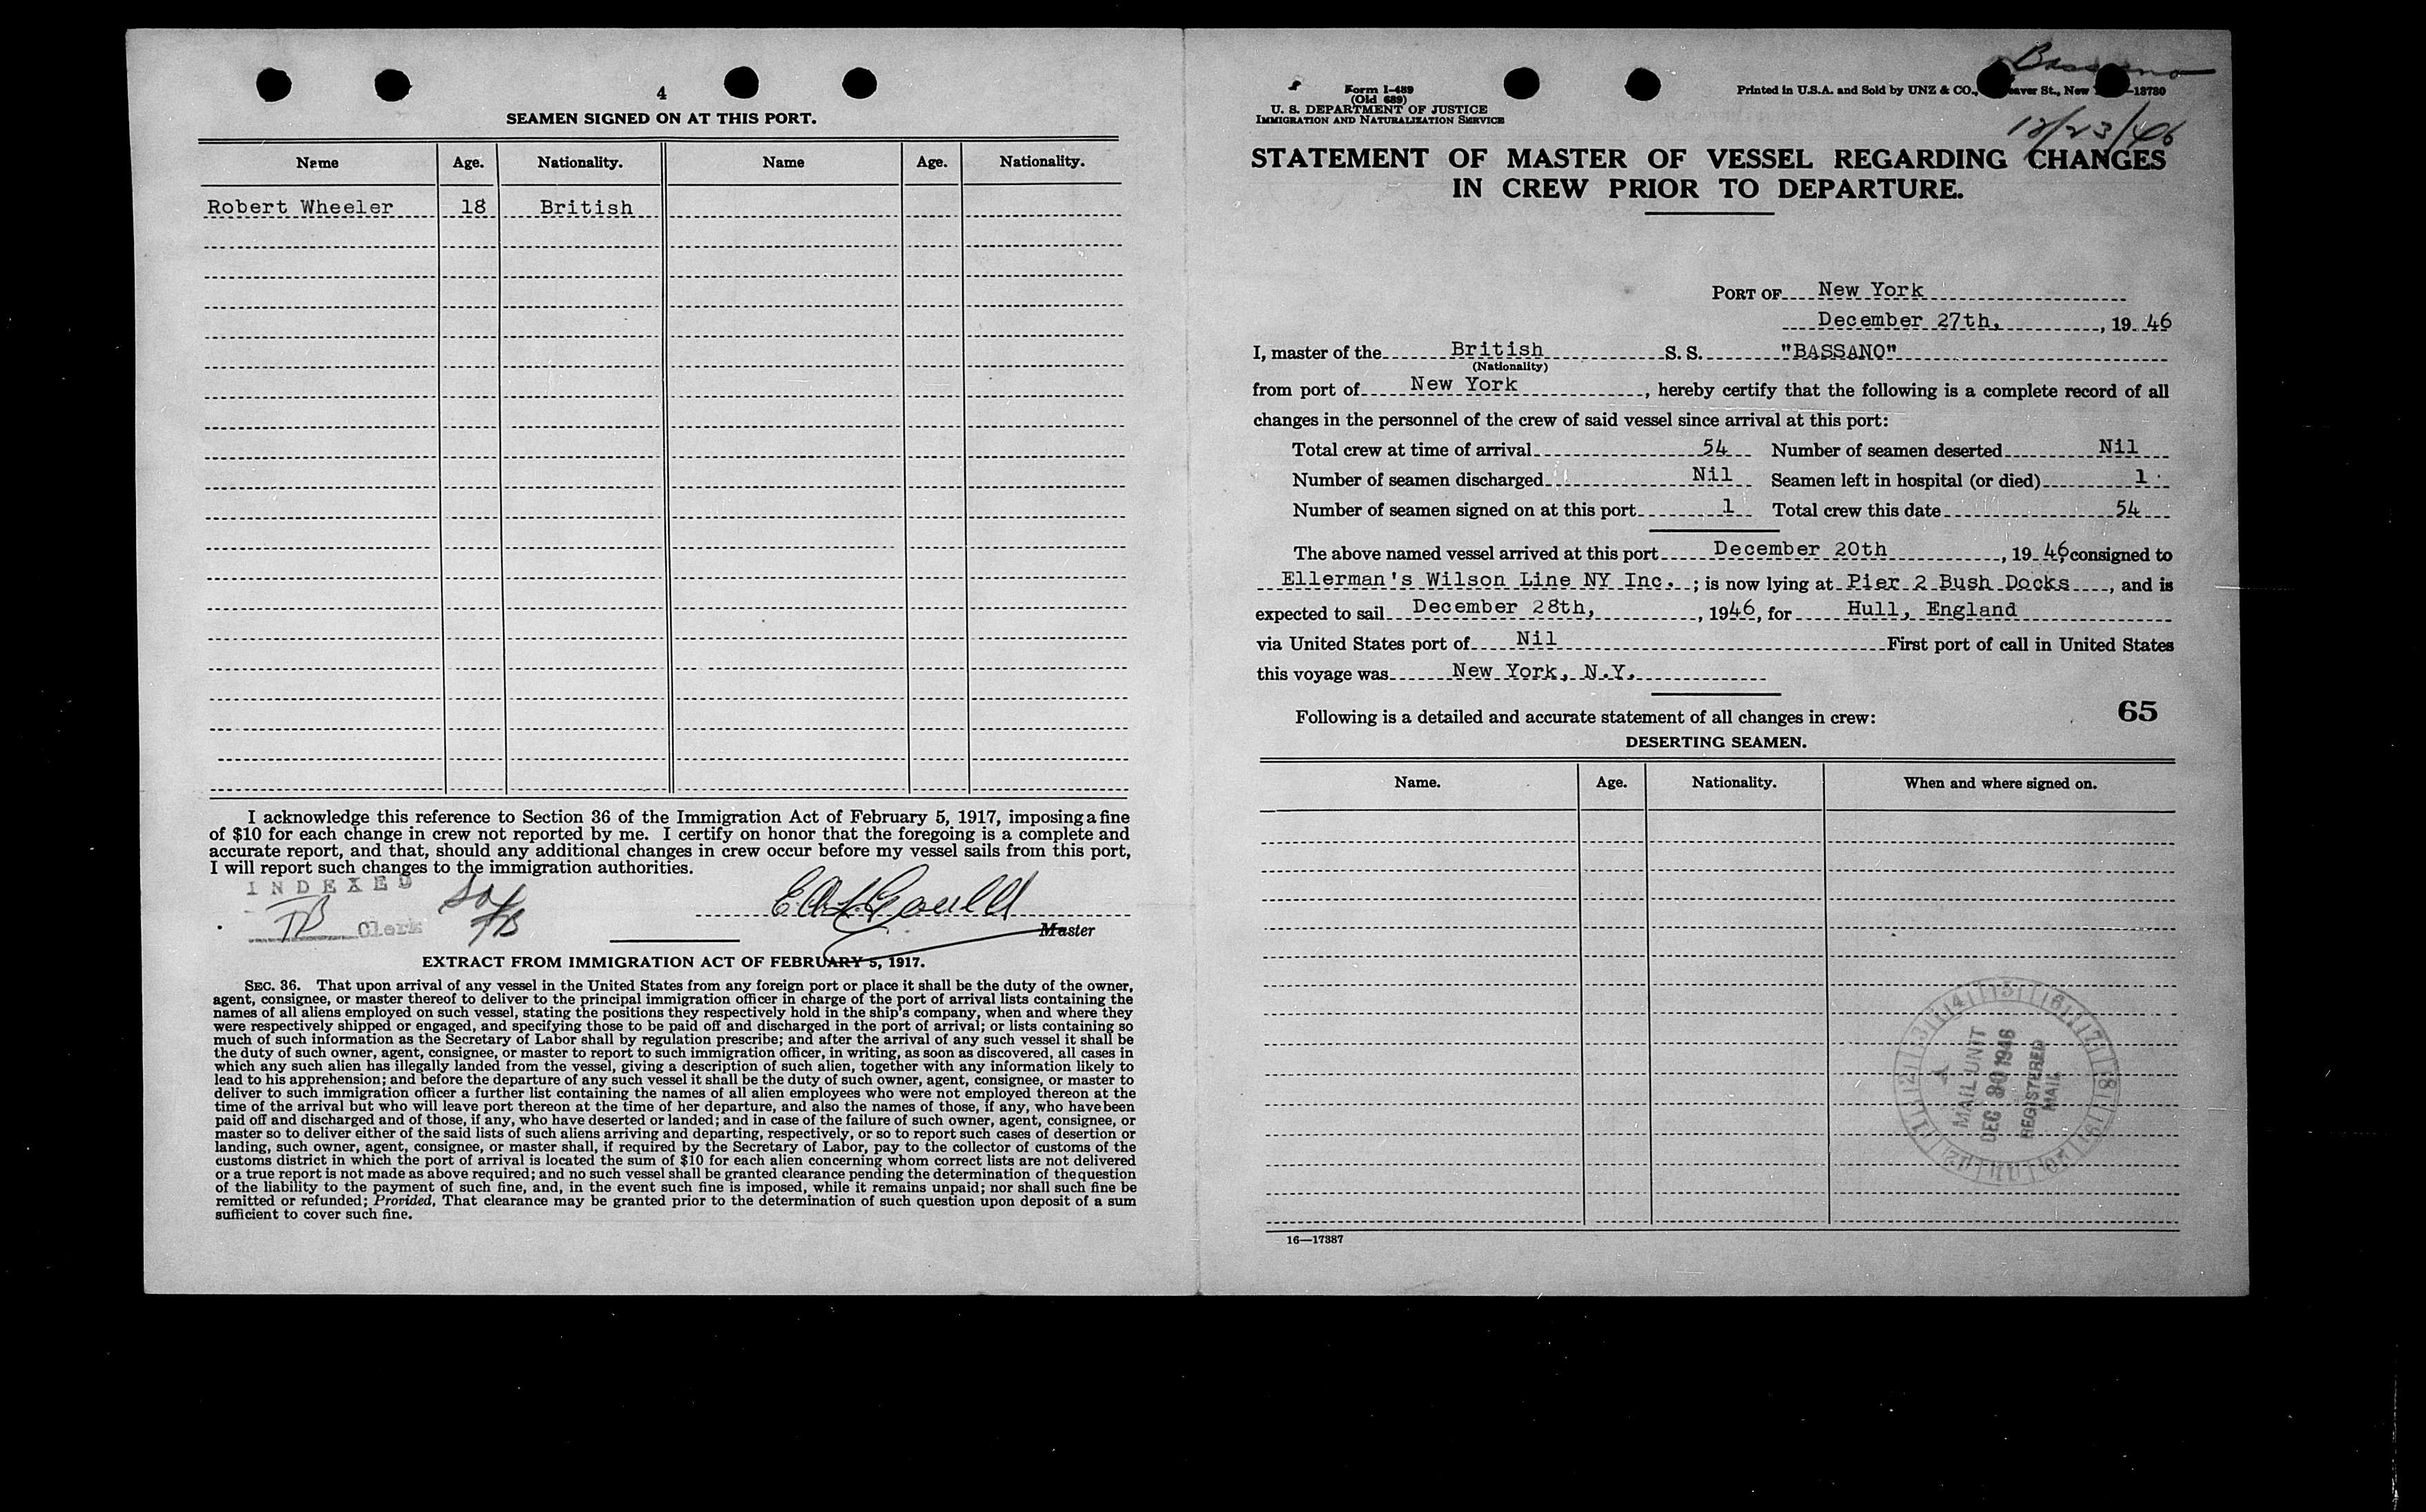 4
SEAMEN SIGNED ON AT THIS PORT.
Name Age. Nationality. Name Age. Nationality.
Robert Wheeler 18 British
I acknowledge this reference to Section 36 of the Immigration Act of February 5, 1917, imposing a fine
of $10 for each change in crew not reported by me. I certify on honor that the foregoing is a complete and
accurate report, and that, should any additional changes in crew occur before my vessel sails from this port,
I will report such changes to the immigration authorities.
INDEXED
TB Clerk
Gould
Master
EXTRACT FROM IMMIGRATION ACT OF FEBRUARY 5, 1917.
SEC. 36. That upon arrival of any vessel in the United States from any foreign port or place it shall be the duty of the owner,
agent, consignee, or master thereof to deliver to the principal immigration officer in charge of the port of arrival lists containing the
names of all aliens employed on such vessel, stating the positions they respectively hold in the ship's company, when and where they
were respectively shipped or engaged, and specifying those to be paid off and discharged in the port of arrival; or lists containing so
much of such information as the Secretary of Labor shall by regulation prescribe; and after the arrival of any such vessel it shall be
the duty of such owner, agent, consignee, or master to report to such immigration officer, in writing, as soon as discovered, all cases in
which any such alien has illegally landed from the vessel, giving a description of such alien, together with any information likely to
lead to his apprehension; and before the departure of any such vessel it shall be the duty of such owner, agent, consignee, or master to
deliver to such immigration officer a further list containing the names of all alien employees who were not employed thereon at the
time of the arrival but who will leave port thereon at the time of her departure, and also the names of those, if any, who have been
paid off and discharged and of those, if any, who have deserted or landed; and in case of the failure of such owner, agent, consignee, or
master so to deliver either of the said lists of such aliens arriving and departing, respectively, or so to report such cases of desertion or
landing, such owner, agent, consignee, or master shall, if required by the Secretary of Labor, pay to the collector of customs of the
customs district in which the port of arrival is located the sum of $10 for each alien concerning whom correct lists are not delivered
or a true report is not made as above required; and no such vessel shall be granted clearance pending the determination of the question
of the liability to the payment of such fine, and, in the event such fine is imposed, while it remains unpaid; nor shall such fine be
remitted or refunded; Provided, That clearance may be granted prior to the determination of such question upon deposit of a sum
sufficient to cover such fine.
Bassano
12/23/46
Form I-489
(Old 689)
U. S. DEPARTMENT OF JUSTICE
IMMIGRATION AND NATURALIZATION SERVICE
Printed in U.S.A. and Sold by UNZ & CO., St., New -13780
STATEMENT OF MASTER OF VESSEL REGARDING CHANGES
IN CREW PRIOR TO DEPARTURE.
PORT OF New York
December 27th, , 19 46
I, master of the British S. S. "BASSANO"
(Nationality)
from port of New York , hereby certify that the following is a complete record of all
changes in the personnel of the crew of said vessel since arrival at this port:
Total crew at time of arrival 54 Number of seamen deserted Nil
Number of seamen discharged Nil Seamen left in hospital (or died) 1
Number of seamen signed on at this port 1 Total crew this date 54
The above named vessel arrived at this port December 20th , 19 46, consigned to
Ellerman's Wilson Line NY Inc. ; is now lying at Pier 2 Bush Docks , and is
expected to sail December 28th, , 1946, for Hull, England
via United States port of Nil First port of call in United States
this voyage was New York, N.Y.
65
Following is a detailed and accurate statement of all changes in crew:
DESERTING SEAMEN.
Name. Age. Nationality. When and where signed on.
MAIL UNIT
DEC 30 1946
REGISTERED
MAIL
16—17387